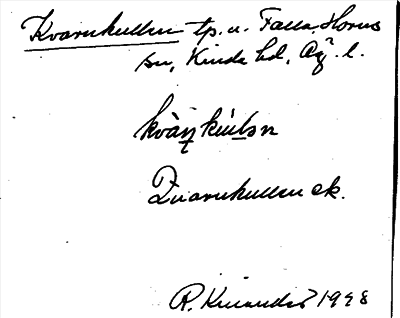 Kvarnkullen tp. u. Falla, Horns
sn, Kinda hd, Ög. l.
kvàn̠kùlən
Quarnkullen ek.
R. Kinander 1948